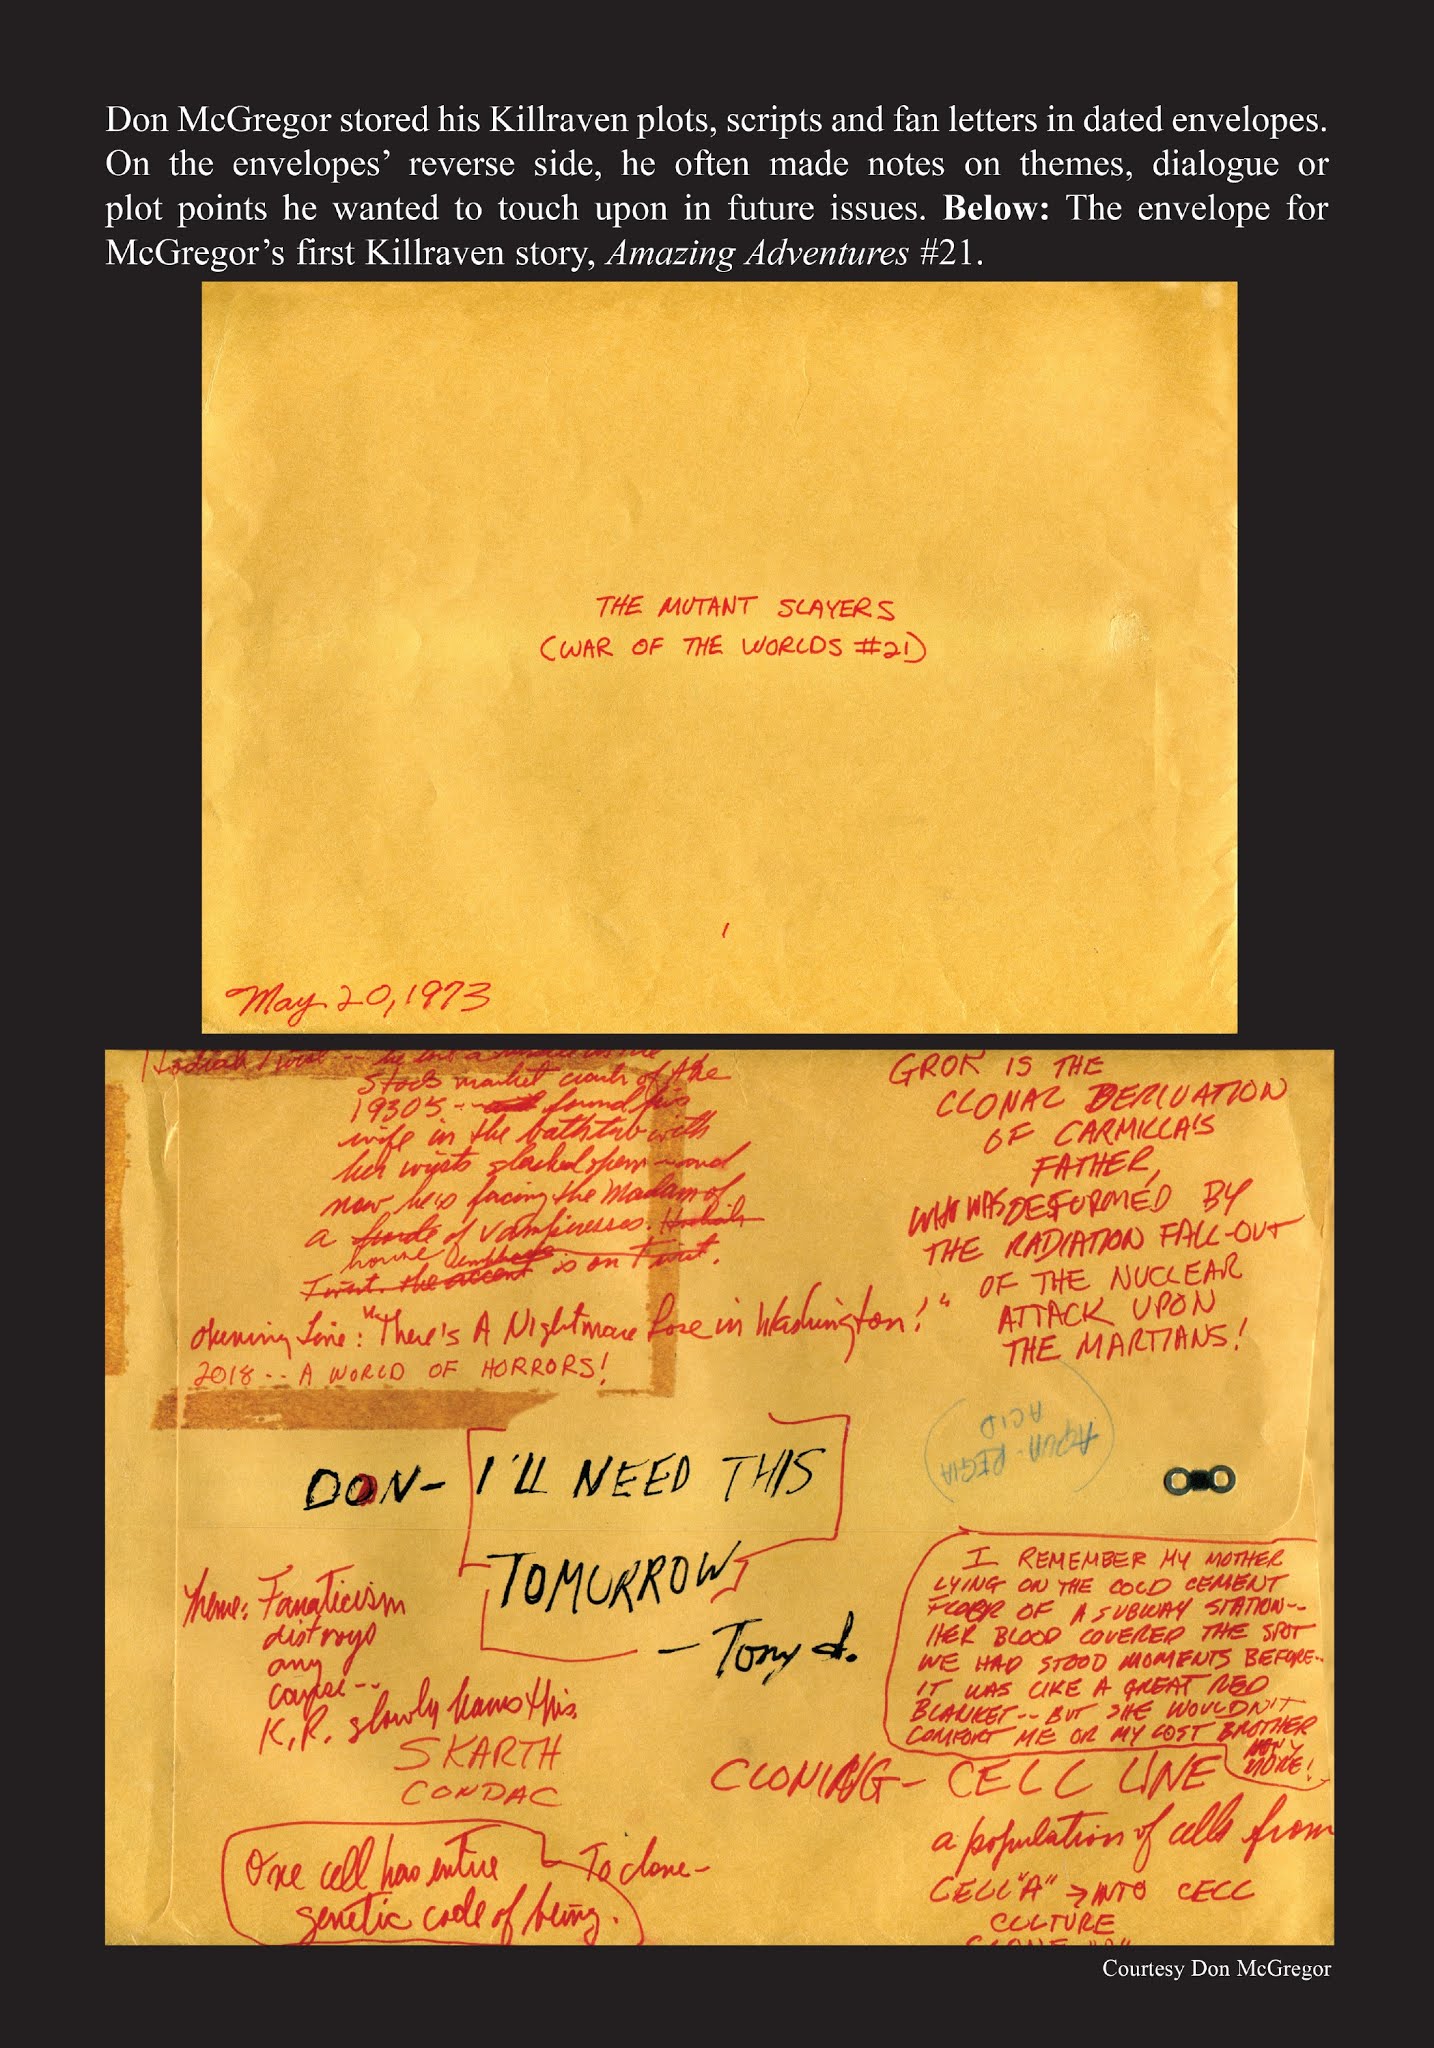 Don McGregor stored his Killraven plots, scripts and fan letters in dated envelopes.
On the envelopes’ reverse side, he often made notes on themes, dialogue or
plot points he wanted to touch upon in future issues. Below: The envelope for
McGregor’s first Killraven story, Amazing Adventures #21.
THE MUTANT SLAYERS
(WAR OF THE WORLDS #21)
May 20, 1973
Hodiah Twist -- he
stock market crash of the
1930's -- found his
wife in the bathtub with
her wrists slashed open -- and
now he's facing the Madam of
a horde of Vampiresses. Hodiah
house emphasis is on Twist.
Twist. the accent
Opening Line: "There's A Nightmare Lose in Washington!"
2018 -- A WORLD OF HORRORS!
GROK IS THE
CLONAL DERIVATION
OF CARMILLA'S
FATHER,
WHO WAS DEFORMED BY
THE RADIATION FALL-OUT
OF THE NUCLEAR
ATTACK UPON
THE MARTIANS!
AQUA-REGIA
ACID
DON- I'LL NEED THIS
TOMORROW
- Tony d.
Theme: Fanaticism
distroys
any
cause--
K.R. slowly learns this.
SKARTH
CONDAC
I REMEMBER MY MOTHER
LYING ON THE COLD CEMENT
FLOOR OF A SUBWAY STATION--
HER BLOOD COVERED THE SPOT
WE HAD STOOD MOMENTS BEFORE--
IT WAS LIKE A GREAT RED
BLANKET -- BUT SHE WOULDN'T
COMFORT ME OR MY LOST BROTHER
ANY
MORE!
CLONING - CELL LINE
a population of cells from
CELL "A" → INTO CELL
CULTURE
One cell has entire
genetic code of being.
To clone -
Courtesy Don McGregor